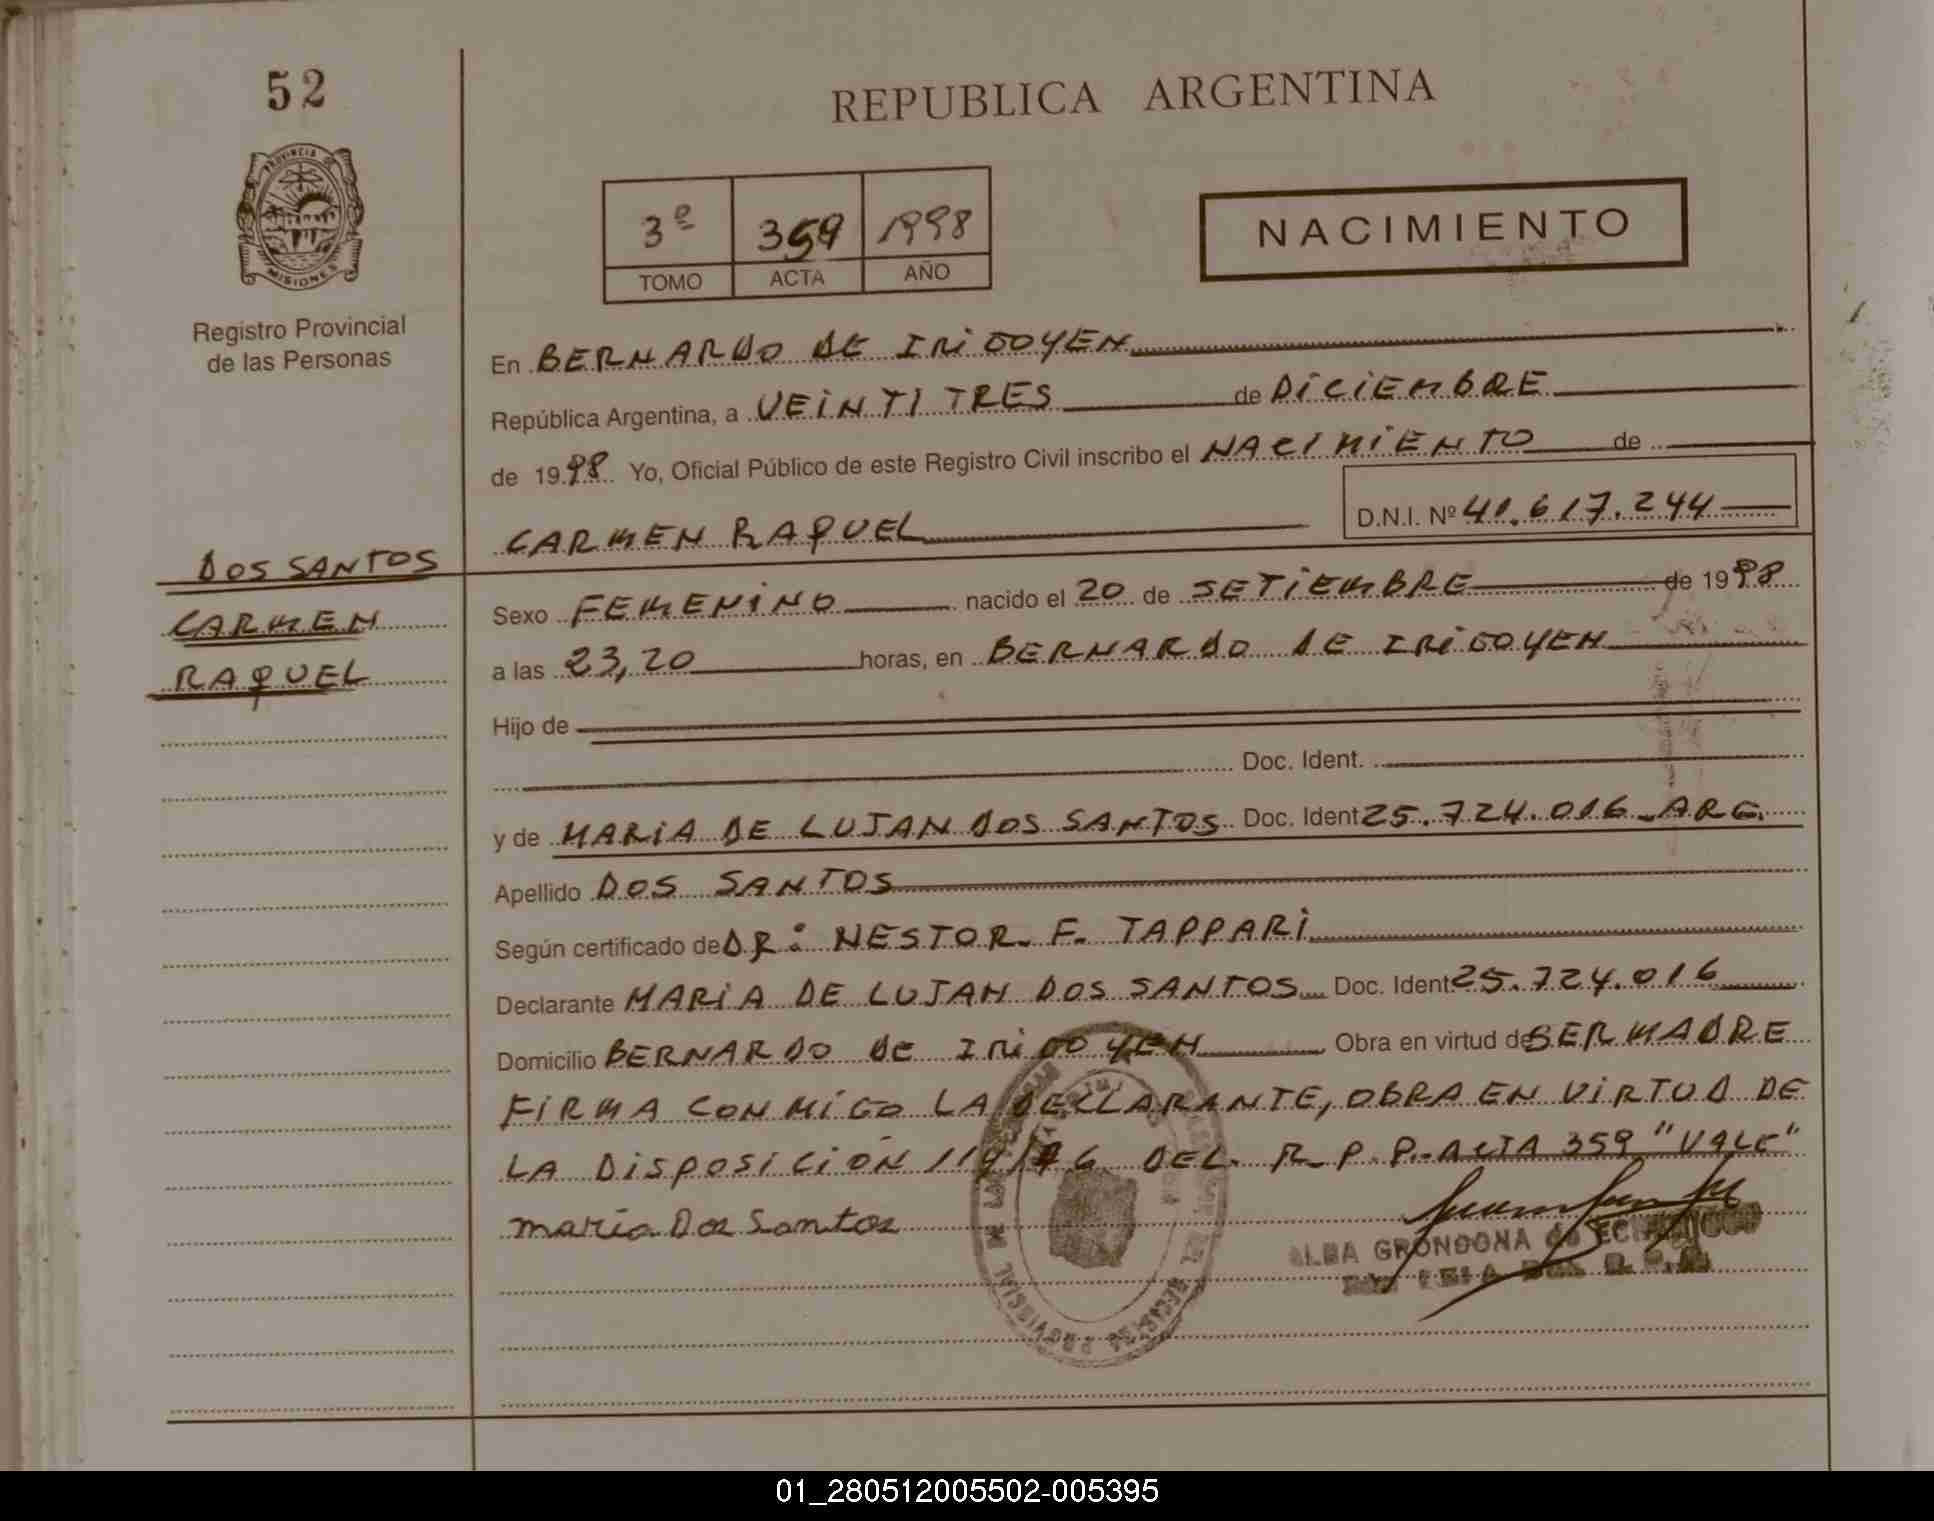 52
REPUBLICA ARGENTINA
PROVINCIA DE
MISIONES
Registro Provincial
de las Personas
3º 359 1998
TOMO ACTA AÑO
NACIMIENTO
En BERNARDO DE IRIGOYEN
República Argentina, a VEINTITRES de DICIEMBRE
de 1998 Yo, Oficial Público de este Registro Civil inscribo el NACIMIENTO de
CARMEN RAQUEL D.N.I. Nº 41.617.244
DOS SANTOS
CARMEN
RAQUEL
Sexo FEMENINO nacido el 20 de SETIEMBRE de 1998
a las 23,20 horas, en BERNARDO DE IRIGOYEN
Hijo de
Doc. Ident.
y de MARIA DE LUJAN DOS SANTOS Doc. Ident 25.724.016 ARG.
Apellido DOS SANTOS
Según certificado de DR: NESTOR. F. TAPPARI
Declarante MARIA DE LUJAN DOS SANTOS Doc. Ident 25.724.016
Domicilio BERNARDO DE IRIGOYEN Obra en virtud de SER MADRE
FIRMA CONMIGO LA DECLARANTE, OBRA EN VIRTUD DE
LA DISPOSICIÓN 114/76 DEL. R. P. P. ACTA 359 "VALE"
maria Dos Santos
ALBA GRONDONA de
01_280512005502-005395